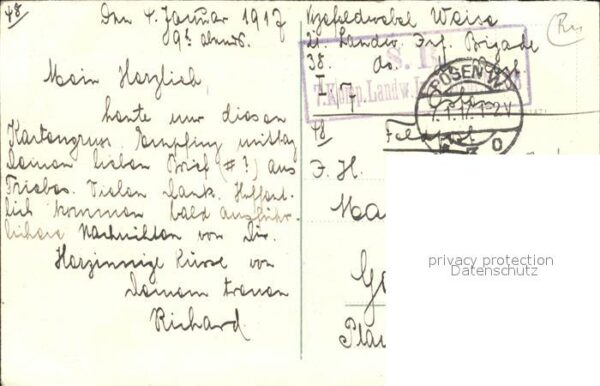 48
Den 4. Januar 1917
9h. abends.
Mein Herzlieb,
heute nur diesen
Kartengruss. Empfing mittag
Deinen lieben Brief (# ?) aus
Triebes. Vielen Dank. Hoffent-
lich kommen bald ausführ-
lichere Nachrichten von Dir.
Herzinnige Küsse von
Deinem treuen
Richard
Vizefeldwebel
21. Landw. Inf. Brigade
38.
I 7
S. B.
7. Komp. Landw.
POSEN W.
7.1.17. 1-2 V
Feldpost
48
F. H.
Ma
Plau
privacy protection
Datenschutz